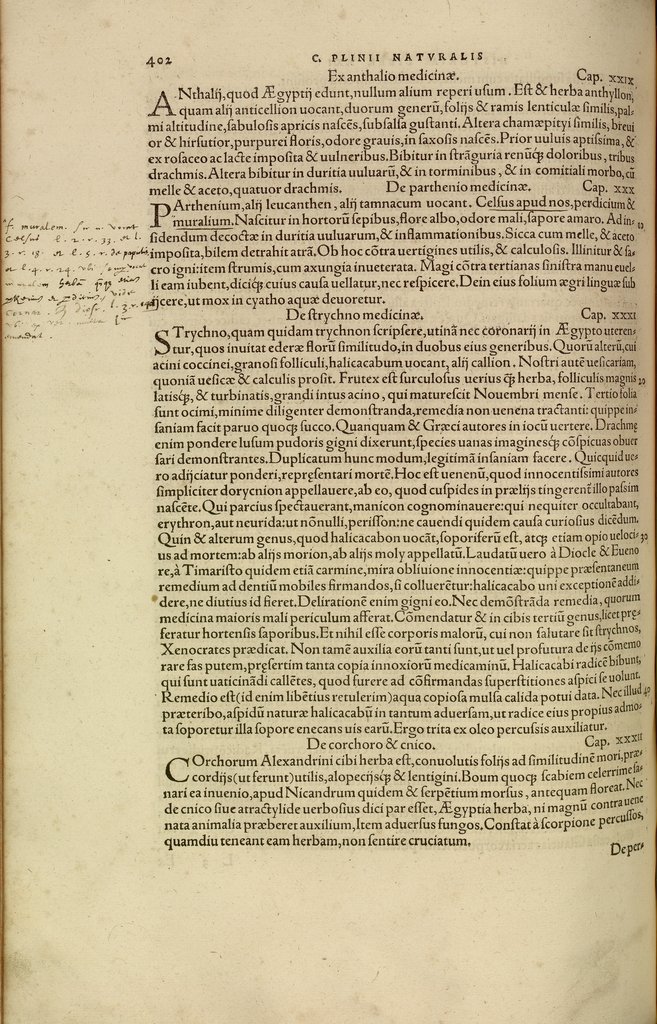 402
C. PLINII NATVRALIS
Ex anthalio medicinæ. Cap. XXIX
ANthalij, quod Ægyptij edunt, nullum alium reperi usum. Est & herba anthyllon,
quam alij anticellion uocant, duorum generũ, folijs & ramis lenticulæ similis, pal⸗
mi altitudine, sabulosis apricis nascẽs, subsalsa gustanti. Altera chamæpityi similis, breui
or & hirsutior, purpurei floris, odore grauis, in saxosis nascẽs. Prior uuluis aptissima, &
ex rosaceo ac lacte imposita & uulneribus. Bibitur in strãguria renũq̃ doloribus, tribus
drachmis. Altera bibitur in duritia uuluarũ, & in torminibus, & in comitiali morbo, cũ
melle & aceto, quatuor drachmis. De parthenio medicinæ. Cap. XXX
PArthenium, alij leucanthen, alij tamnacum uocant. Celsus apud nos, perdicium &
muralium. Nascitur in hortorũ sepibus, flore albo, odore mali, sapore amaro. Ad in⸗ 10
sidendum decoctæ in duritia uuluarum, & inflammationibus. Sicca cum melle, & aceto
imposita, bilem detrahit atrã. Ob hoc cõtra uertigines utilis, & calculosis. Illinitur & sa⸗
cro igni: item strumis, cum axungia inueterata. Magi cõtra tertianas sinistra manu euel⸗
li eam iubent, diciq̃ cuius causa uellatur, nec respicere. Dein eius folium ægri linguæ sub
ijcere, ut mox in cyatho aquæ deuoretur.
De strychno medicinæ. Cap. XXXI
STrychno, quam quidam trychnon scripsere, utinã nec coronarij in Ægypto uteren⸗
tur, quos inuitat ederæ florũ similitudo, in duobus eius generibus. Quorũ alterũ, cui
acini coccinei, granosi folliculi, halicacabum uocant, alij callion. Nostri autẽ uesicariam,
quoniã uesicæ & calculis prosit. Frutex est surculosus uerius q̃ herba, folliculis magnis 20
latisq̃, & turbinatis, grandi intus acino, qui maturescit Nouembri mense. Tertio folia
sunt ocimi, minime diligenter demonstranda, remedia non uenena tractanti: quippe in⸗
saniam facit paruo quoq̃ succo. Quanquam & Græci autores in iocũ uertere. Drachmę
enim pondere lusum pudoris gigni dixerunt, species uanas imaginesq̃ cõspicuas obuer
sari demonstrantes. Duplicatum hunc modum, legitimã insaniam facere. Quicquid ue⸗
ro adijciatur ponderi, repręsentari mortẽ. Hoc est uenenũ, quod innocentissimi autores
simpliciter dorycnion appellauere, ab eo, quod cuspides in prælijs tingerent̃ illo passim
nascẽte. Qui parcius spectauerant, manicon cognominauere: qui nequiter occultabant,
erythron, aut neurida: ut nõnulli, perisson: ne cauendi quidem causa curiosius dicẽdum.
Quin & alterum genus, quod halicacabon uocãt, soporiferũ est, atq̃ etiam opio ueloci⸗ 30
us ad mortem: ab alijs morion, ab alijs moly appellatũ. Laudatũ uero à Diocle & Eueno
re, à Timaristo quidem etiã carmine, mira obliuione innocentiæ: quippe præsentaneum
remedium ad dentiũ mobiles firmandos, si colluerẽtur: halicacabo uni exceptionẽ addi⸗
dere, ne diutius id fieret. Delirationẽ enim gigni eo. Nec demõstrãda remedia, quorum
medicina maioris mali periculum afferat. Cõmendatur & in cibis tertiũ genus, licet prę⸗
feratur hortensis saporibus. Et nihil esse corporis malorũ, cui non salutare sit strychnos,
Xenocrates prædicat. Non tamẽ auxilia eorũ tanti sunt, ut uel profutura de ijs cõmemo
rare fas putem, pręsertim tanta copia innoxiorũ medicaminũ. Halicacabi radicẽ bibunt,
qui sunt uaticinãdi callẽtes, quod furere ad cõfirmandas superstitiones aspici se uolunt.
Remedio est (id enim libẽtius retulerim) aqua copiosa mulsa calida potui data. Nec illud 40
præteribo, aspidũ naturæ halicacabũ in tantum aduersam, ut radice eius propius admo⸗
ta soporetur illa sopore enecans uis earũ. Ergo trita ex oleo percussis auxiliatur.
De corchoro & cnico. Cap. XXXII
COrchorum Alexandrini cibi herba est, conuolutis folijs ad similitudinẽ mori, præ⸗
cordijs (ut ferunt) utilis, alopecijsq̃ & lentigini. Boum quoq̃ scabiem celerrime sa⸗
nari ea inuenio, apud Nicandrum quidem & serpẽtium morsus, antequam floreat. Nec
de cnico siue atractylide uerbosius dici par esset, Ægyptia herba, ni magnũ contra uene
nata animalia præberet auxilium, Item aduersus fungos. Constat à scorpione percussos,
quamdiu teneant eam herbam, non sentire cruciatum.
De per⸗
f. muralem.
Celsus l. 2. c. 33. et l.